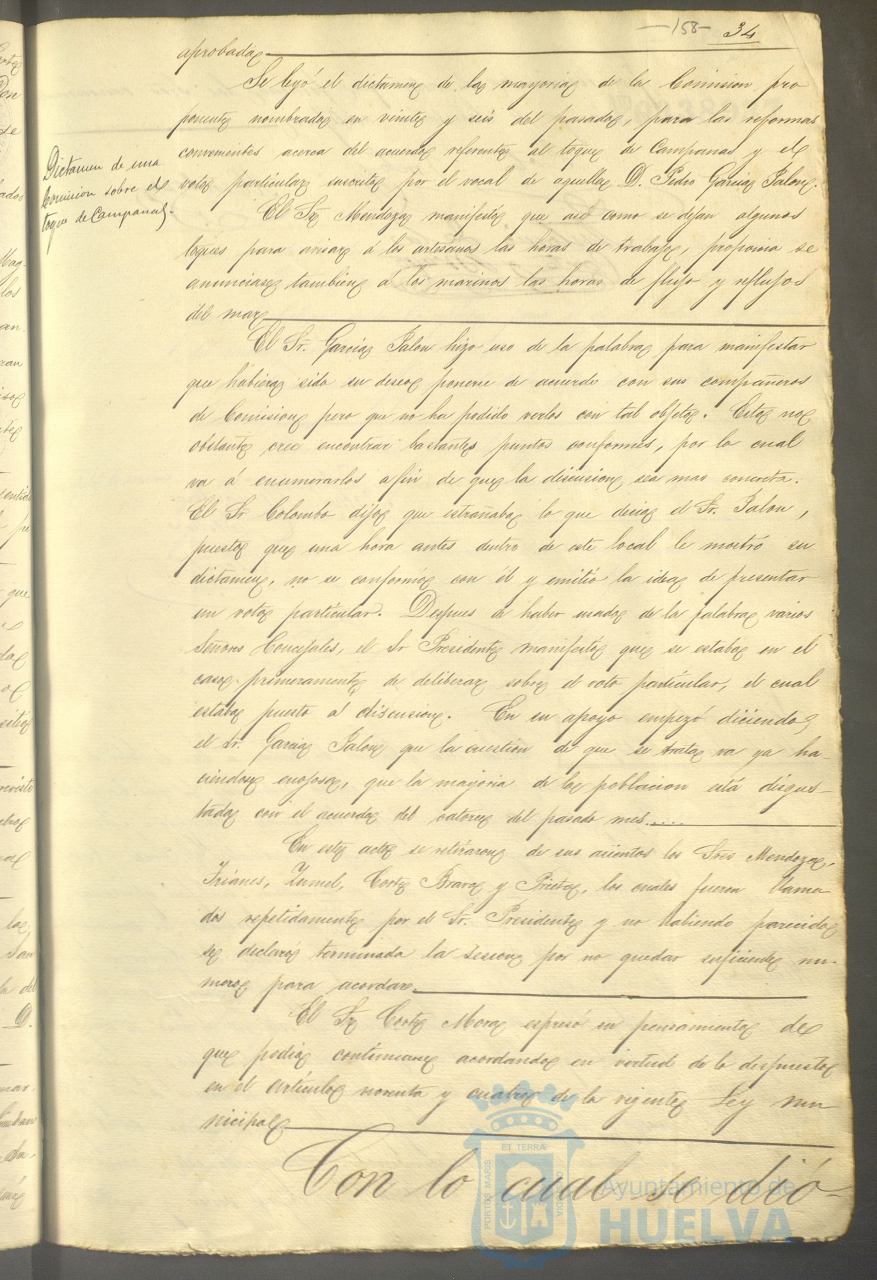 -158- 34
aprobada
Se leyó el dictamen de la mayoria de la Comision pro
ponente nombrada en veinte y seis del pasado, para las reformas
convenientes acerca del acuerdo referente al toque de Campanas y el
voto particular suscrito por el vocal de aquella D. Pedro Garcia Jalon.
Dictamen de una
Comision sobre el
toque de Campanas.
El Sr Mendoza manifestó que asi como se dejan algunos
toques para avisar á los artesanos las horas de trabajo, proponia se
anunciase tambien á los marinos las horas de flujo y reflujos
del mar
El Sr. Garcia Jalon hizo uso de la palabra para manifestar
que hubiera sido su deseo ponerse de acuerdo con sus compañeros
de Comision pero que no ha podido verlos con tal objeto. Esto no
obstante cree encontrar bastantes puntos conformes, por lo cual
va á enumerarlos afin de que la discusion sea mas concreta.
El Sr Colombo dijo que estrañaba lo que decia el Sr. Jalon,
puesto que una hora antes dentro de este local le mostró su
dictamen, no se conformó con él y emitió la idea de presentar
un voto particular. Despues de haber usado de la palabra varios
Señores Concejales, el Sr Presidente manifestó que se estaba en el
caso primeramente de deliberar sobre el voto particular, el cual
estaba puesto al discusion. En su apoyo empezó diciendo
el Sr. Garcia Jalon que la cuestion de que se trata va ya ha-
ciendose enojosa, que la mayoria de la poblacion está disgus-
tada con el acuerdo del catorce del pasado mes....
En este acto se retiraron de sus asientos los Sres Mendoza,
Trianes, Zumel, Corte Brava y Prieto, los cuales fueron llama
dos repetidamente por el Sr. Presidente y no habiendo parecido
se declaró terminada la sesion por no quedar suficiente nu-
mero para acordar.
El Sr Corte Mora espresó su pensamiento de
que podia continuarse acordando en virtud de lo dispuesto
en el artículo noventa y cuatro de la vigente Ley mu
nicipal
Con lo cual se dió-
PORTUS MARIS
ET TERRÆ
CUSTODIA
Ayuntamiento de
HUELVA